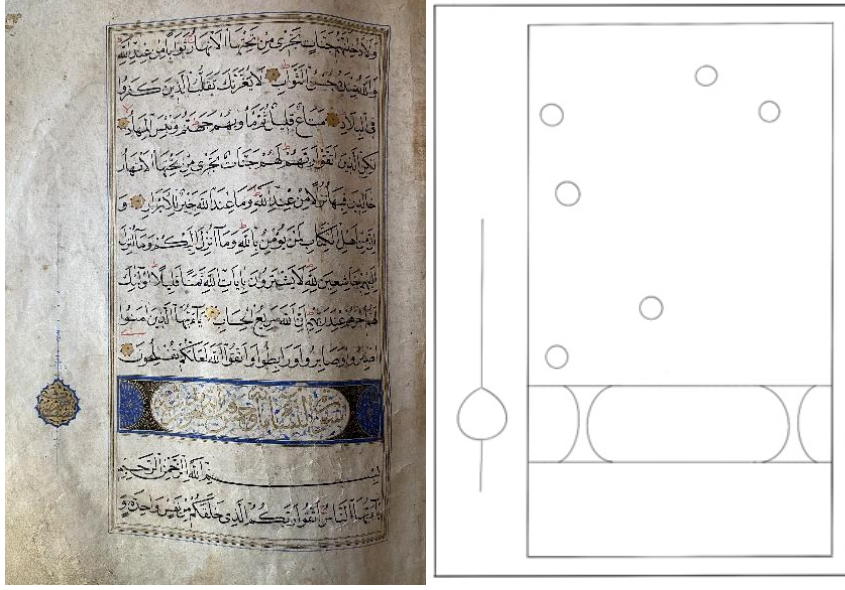 ولادخلنهم جنات تجرى من تحتها الانهار ثوابا من عند الله
والله عنده حسن الثواب لا يغرنك تقلب الذين كفروا
فى البلاد متاع قليل ثم ماويهم جهنم وبئس المهاد
لكن الذين اتقوا ربهم لهم جنات تجرى من تحتها الانهار
خالدين فيها نزلا من عند الله وما عند الله خير للابرار و
ان من اهل الكتاب لمن يؤمن بالله وما انزل اليكم وما انزل
اليهم خاشعين لله لا يشترون بايات الله ثمنا قليلا اولئك
لهم اجرهم عند ربهم ان الله سريع الحساب يا ايها الذين امنوا
اصبروا وصابروا ورابطوا واتقوا الله لعلكم تفلحون
بسم الله الرحمن الرحيم
يا ايها الناس اتقوا ربكم الذى خلقكم من نفس واحدة و